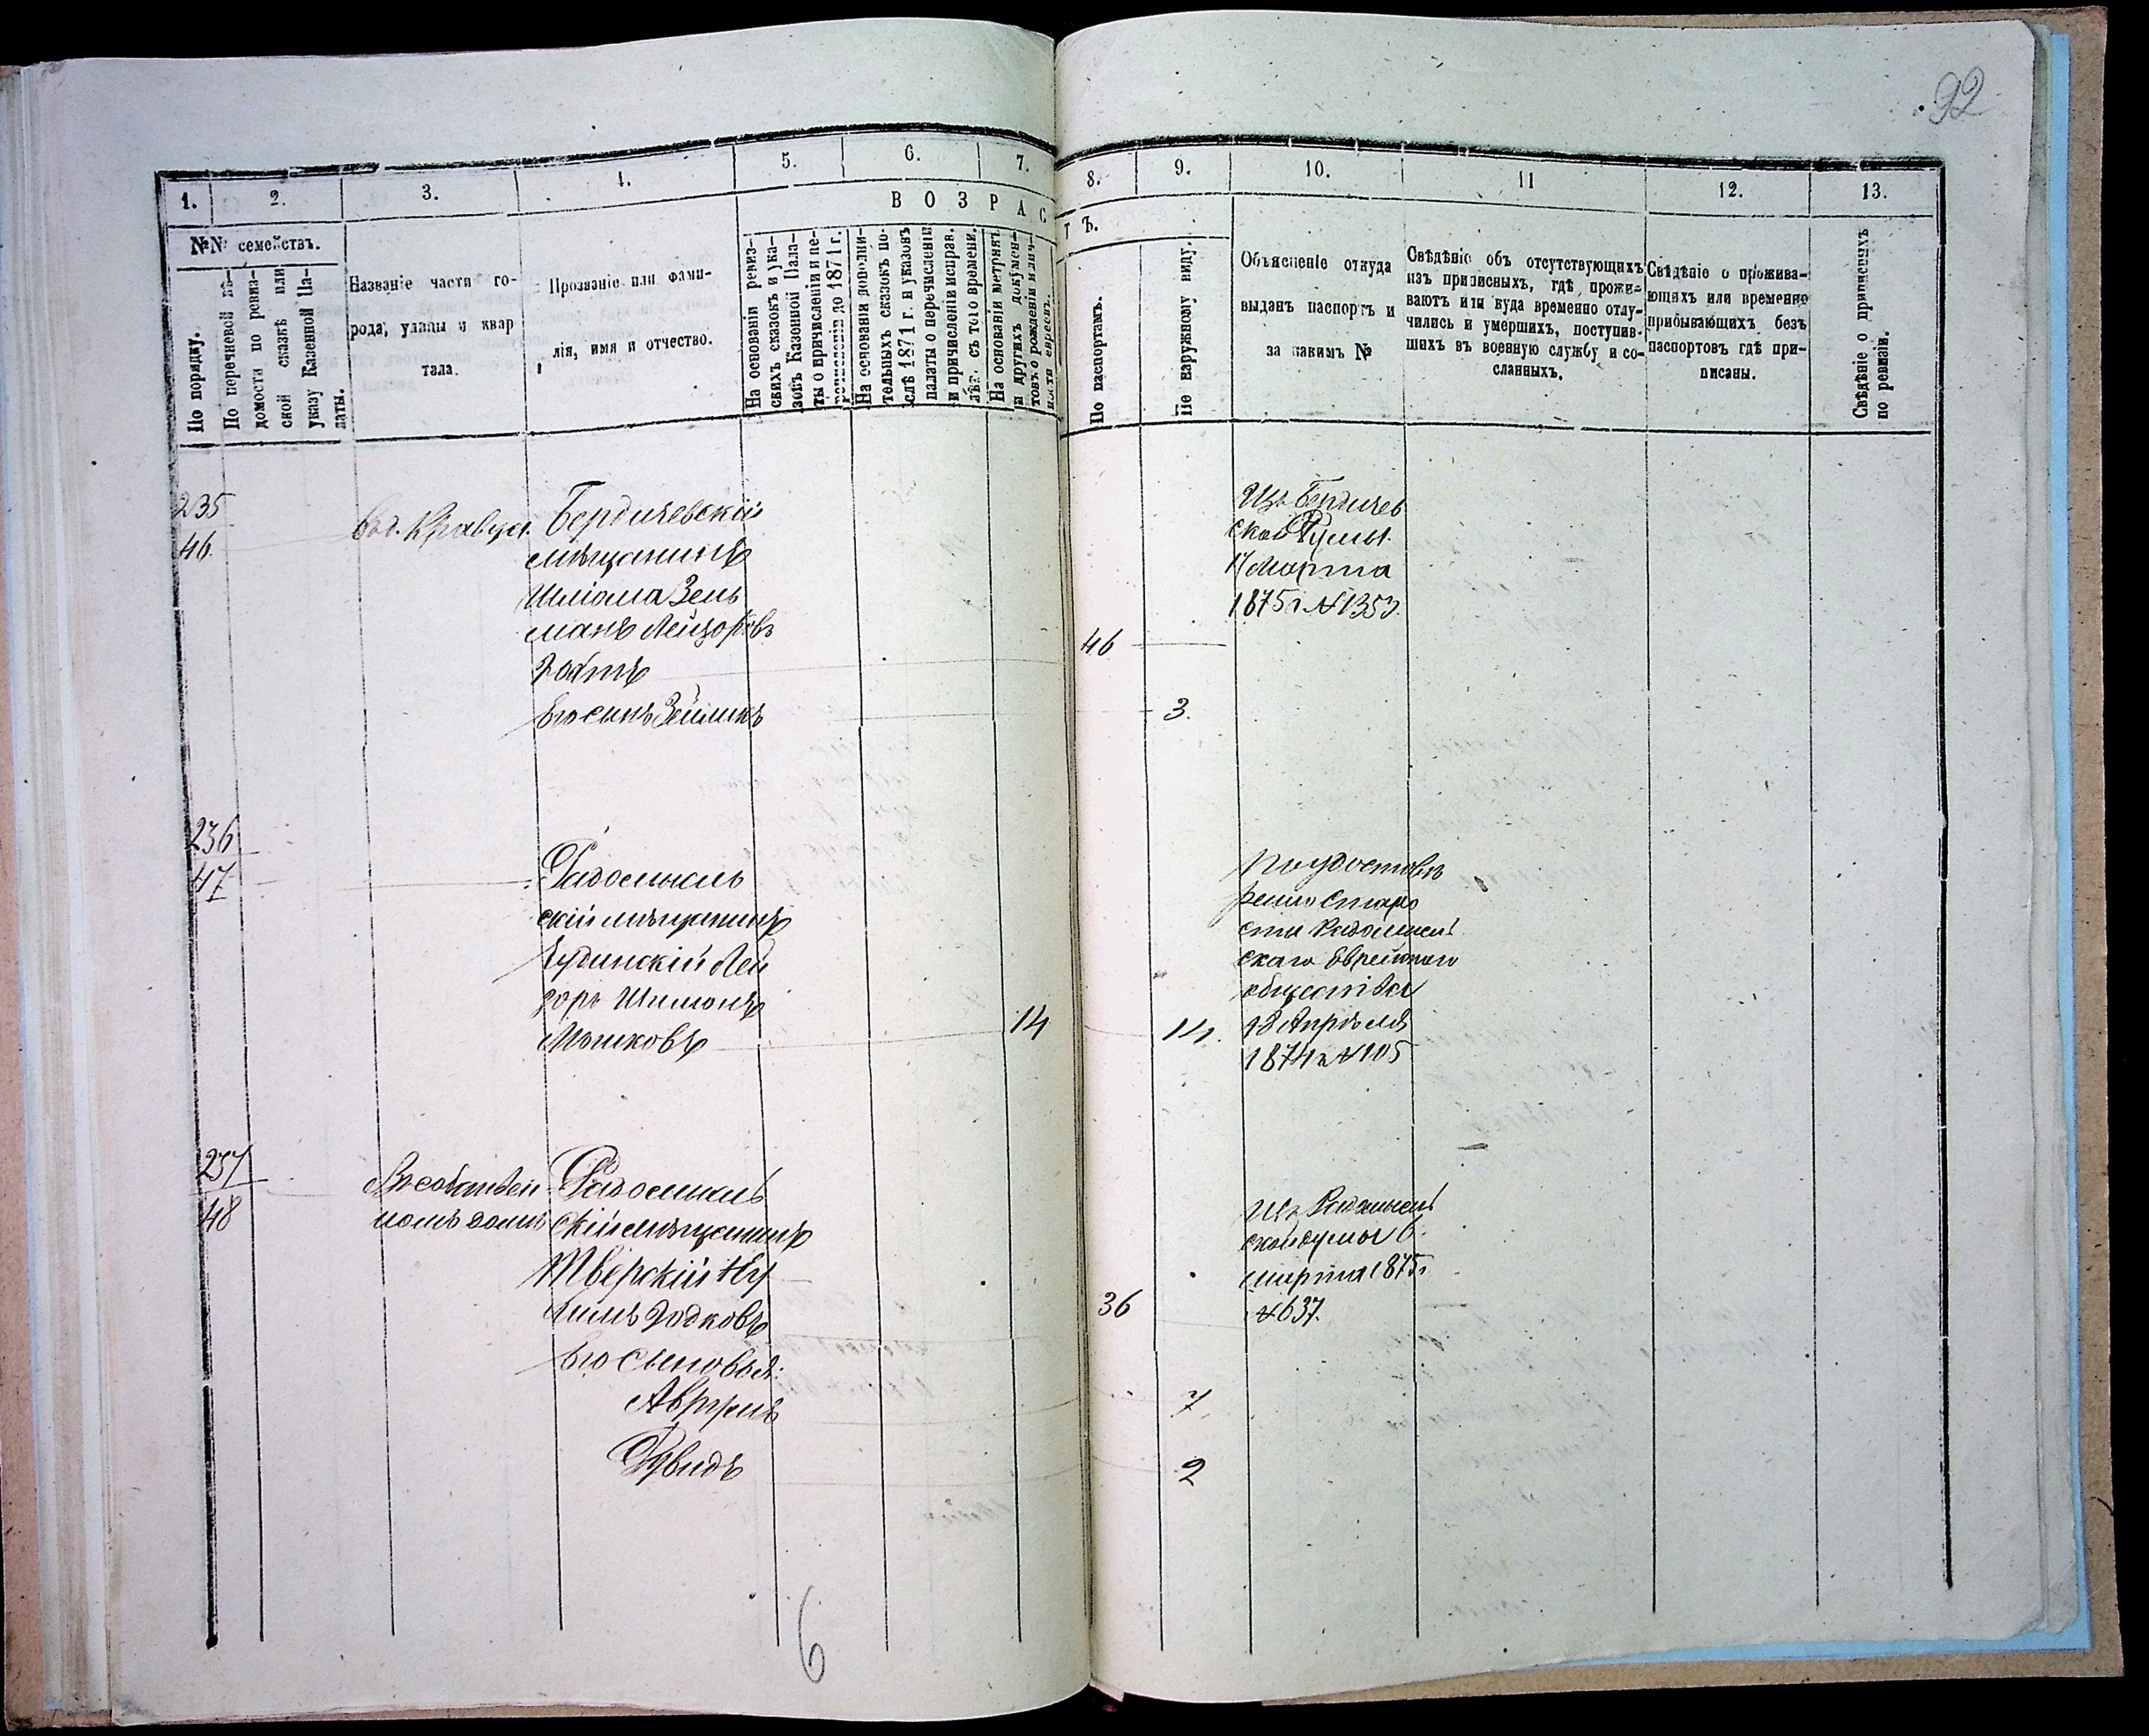 92
1.
2.
3.
4.
5.
6.
7.
8.
9.
10.
11
12.
13.
№№ семействъ.
По порядку.
По перечневой вѣ-
домости по ревиз-
ской сказкѣ или
указу Казенной Па-
латы.
Названіе части го-
рода, улицы и квар
тала.
Прозваніе или фами-
лія, имя и отчество.
ВОЗРАСТЪ.
На основаніи ревиз-
скихъ сказокъ и ука-
зовъ Казенной Пала-
ты о причисленіи и пе-
речисленіи до 1871 г.
На основаніи дополни-
тельныхъ сказокъ по-
слѣ 1871 г. и указовъ
палаты о перечисленіи
и причисленіи исправ.
лѣт. съ того времени.
На основаніи метрикъ
и другихъ докумен-
товъ о рожденіи и лич-
ности евреевъ.
По паспортамъ.
По наружному виду.
Объясненіе откуда
выданъ паспортъ и
за какимъ №
Свѣдѣніе объ отсутствующихъ
изъ приписныхъ, гдѣ прожи-
ваютъ или куда временно отлу-
чились и умершихъ, поступив-
шихъ въ военную службу и со-
сланныхъ.
Свѣдѣніе о прожива-
ющихъ или временно
прибывающихъ безъ
паспортовъ гдѣ при-
писаны.
Свѣдѣніе о приписныхъ
по ревизіи.
235
46
Кравца
Бердичевскій
мѣщанинъ
Шліома Зель
манъ Лейзоровъ
46
Его сынъ Зейликъ
3.
Изъ Бердичев
ской Думы
17 Марта
1875 г. № 1353.
236
47
Радомысль
скій мѣщанинъ
Лей
зоръ Шимонъ
Мошковъ
14
14.
По удостовѣ
ренію Старо
сты Радомысль
скаго Еврейскаго
общества
18 Апрѣля
1874 г. № 105
237
48
Въ собствен
номъ домѣ
Радомысль
скій мѣщанинъ
Тверскій Ну
химъ Додковъ
36
Его сыновья:
Аврумъ
7
Дувидъ
2
Изъ Радомысль
ской думы 6
марта 1875 г
№ 637.
6